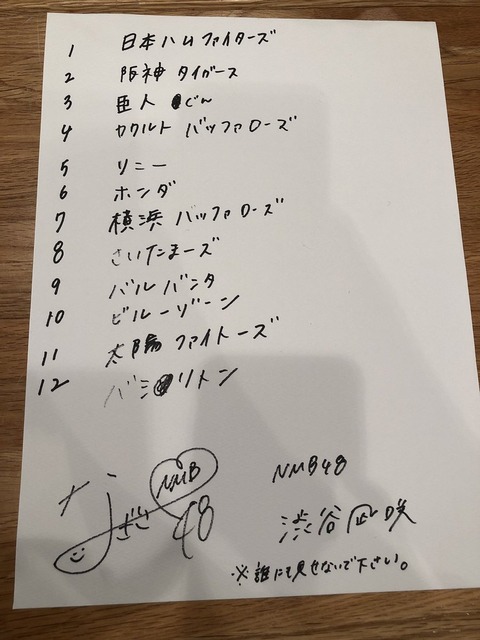 1 日本ハムファイターズ
2 阪神タイガース
3 巨人 じん
4 ヤクルト バッファローズ
5 ソニー
6 ホンダ
7 横浜 バッファローズ
8 さいたまーズ
9 バルバンタ
10 ビルーゾーン
11 太陽 ファイトーズ
12 バミリトン
なぎさ NMB48
NMB48
渋谷凪咲
※誰にも見せないで下さい。